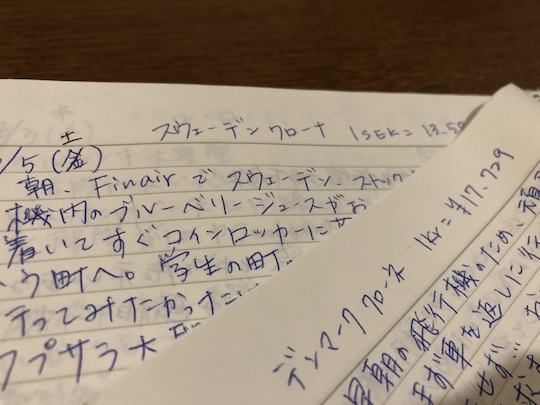 スウェーデンクローナ 1SEK=13.58
土
/5(金)
朝、Finairでスウェーデン、ストック
機内のブルーベリージュースがお
着いてすぐコインロッカーに
う町へ。学生の町、
行ってみたかった
プサラ大
デンマーククローネ 1kr=¥17.729
早朝の飛行機のため、
まず車を返しに行
せず…